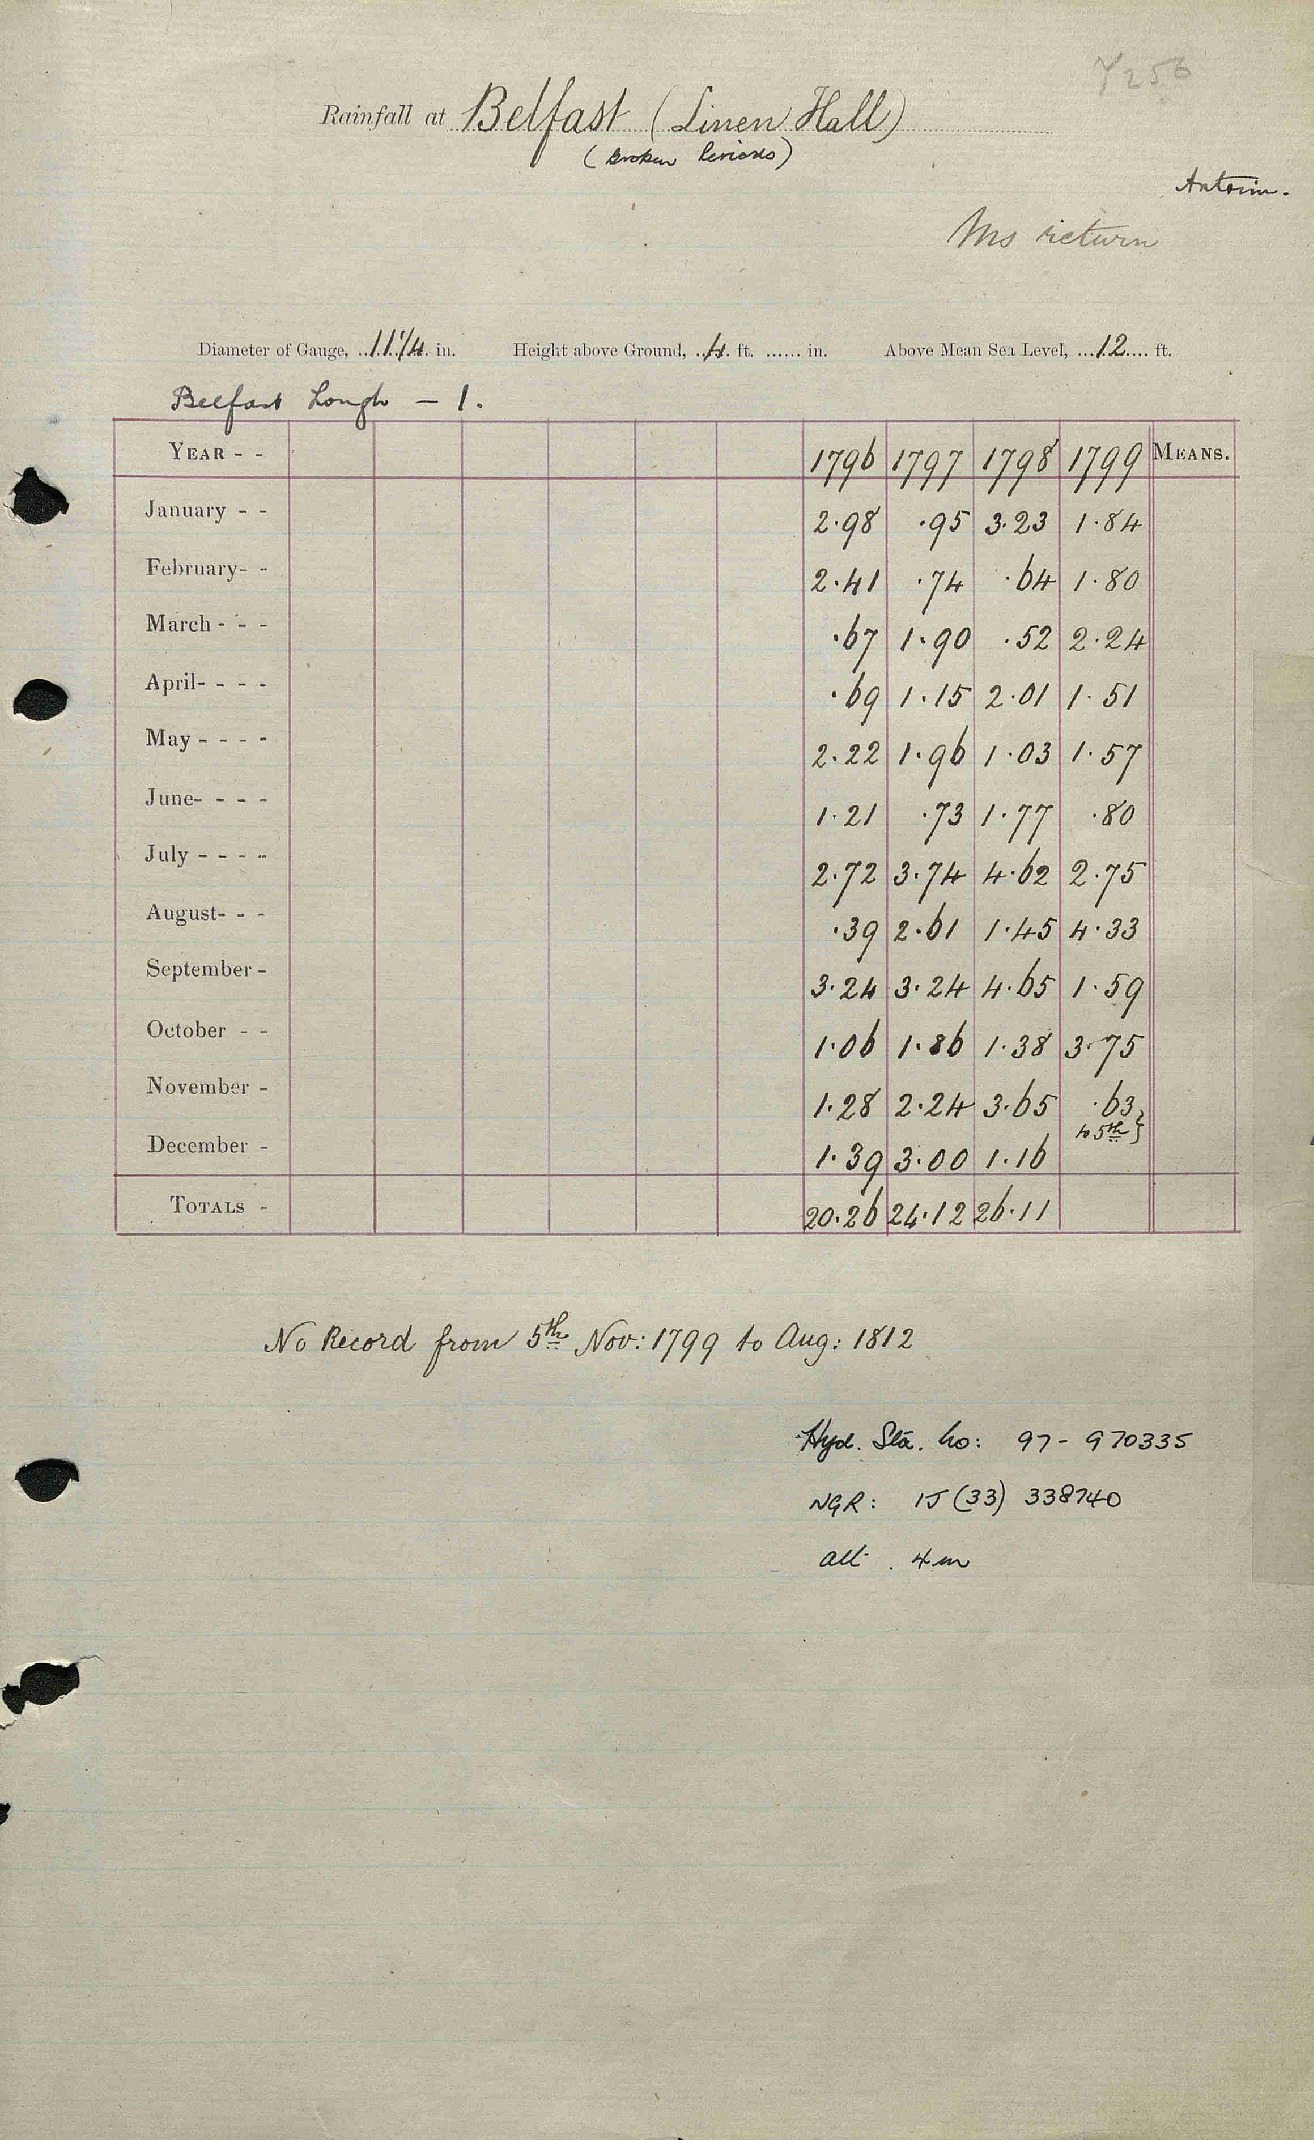 7256
Rainfall at Belfast (Linen Hall)
(Broken Periods)
Antrim.
Ms return
Diameter of Gauge, 11 1/4 in. Height above Ground, 4 ft. ...... in. Above Mean Sea Level, 12 ft.
Belfast Lough - 1.
YEAR - - 1796 1797 1798 1799 MEANS.
January - - 2.98 .95 3.23 1.84
February - - 2.41 .74 .64 1.80
March - - - .67 1.90 .52 2.24
April - - - - .69 1.15 2.01 1.51
May - - - - 2.22 1.96 1.03 1.57
June - - - - 1.21 .73 1.77 .80
July - - - - 2.72 3.74 4.62 2.75
August - - - .39 2.61 1.45 4.33
September - 3.24 3.24 4.65 1.59
October - - 1.06 1.86 1.38 3.75
November - 1.28 2.24 3.65 .63 }
to 5th }
December - 1.39 3.00 1.16
TOTALS - 20.26 24.12 26.11
No Record from 5th Nov: 1799 to Aug: 1812
Hyd. Sta. No: 97-970335
NGR: IJ (33) 338740
alt. 4m